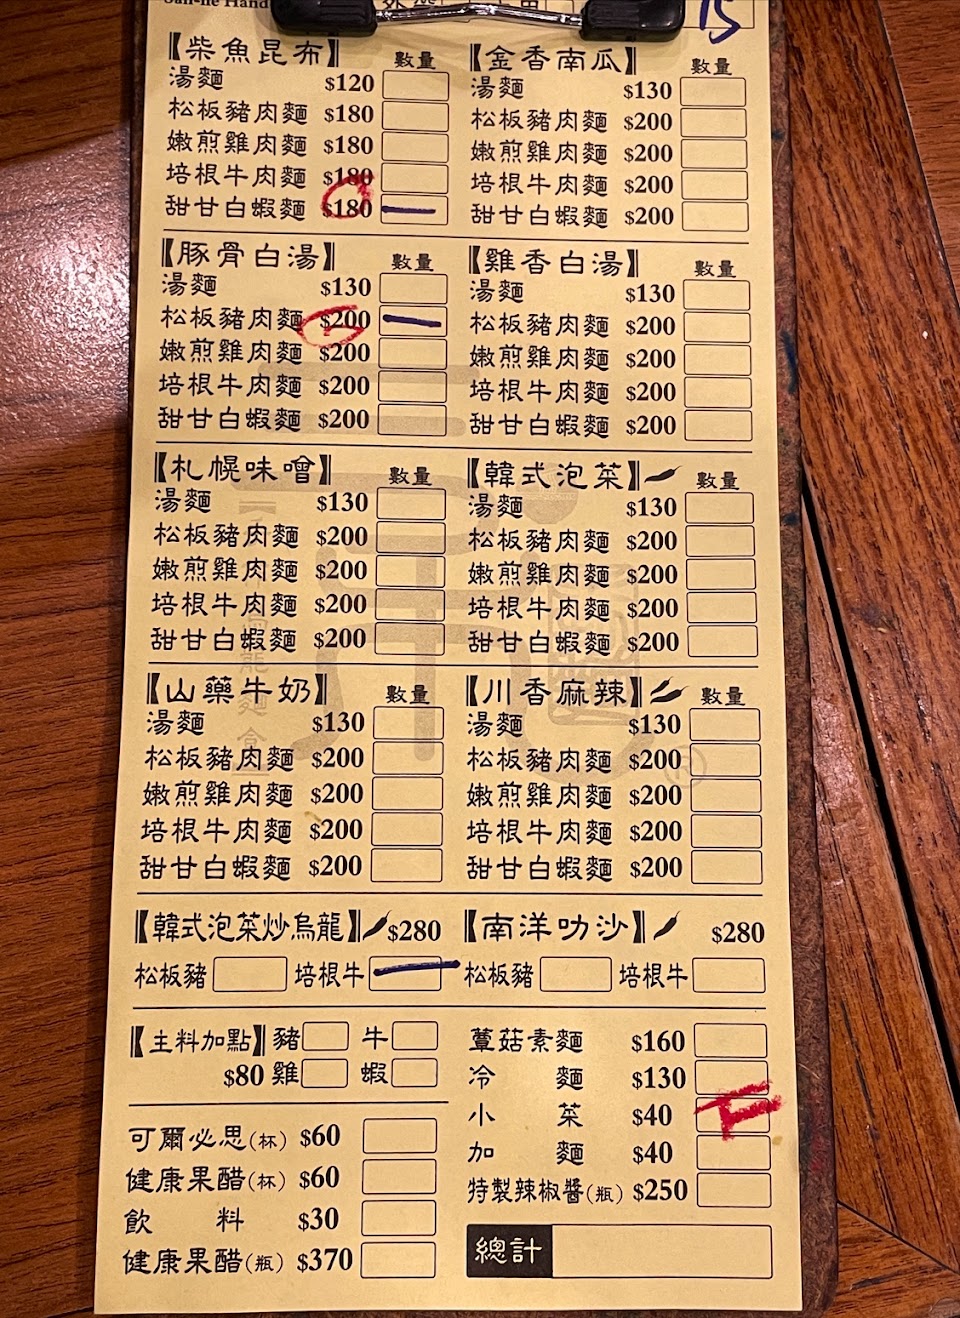 15
【柴魚昆布】 數量
湯麵 $120
松板豬肉麵 $180
嫩煎雞肉麵 $180
培根牛肉麵 $180
甜甘白蝦麵 $180
【金香南瓜】 數量
湯麵 $130
松板豬肉麵 $200
嫩煎雞肉麵 $200
培根牛肉麵 $200
甜甘白蝦麵 $200
【豚骨白湯】 數量
湯麵 $130
松板豬肉麵 $200
嫩煎雞肉麵 $200
培根牛肉麵 $200
甜甘白蝦麵 $200
【雞香白湯】 數量
湯麵 $130
松板豬肉麵 $200
嫩煎雞肉麵 $200
培根牛肉麵 $200
甜甘白蝦麵 $200
【札幌味噌】 數量
湯麵 $130
松板豬肉麵 $200
嫩煎雞肉麵 $200
培根牛肉麵 $200
甜甘白蝦麵 $200
【韓式泡菜】 數量
湯麵 $130
松板豬肉麵 $200
嫩煎雞肉麵 $200
培根牛肉麵 $200
甜甘白蝦麵 $200
【山藥牛奶】 數量
湯麵 $130
松板豬肉麵 $200
嫩煎雞肉麵 $200
培根牛肉麵 $200
甜甘白蝦麵 $200
【川香麻辣】 數量
湯麵 $130
松板豬肉麵 $200
嫩煎雞肉麵 $200
培根牛肉麵 $200
甜甘白蝦麵 $200
【韓式泡菜炒烏龍】 $280
松板豬 培根牛
【南洋叻沙】 $280
松板豬 培根牛
【主料加點】 豬 牛
$80 雞 蝦
可爾必思(杯) $60
健康果醋(杯) $60
飲料 $30
健康果醋(瓶) $370
蕈菇素麵 $160
冷麵 $130
小菜 $40
加麵 $40
特製辣椒醬(瓶) $250
總計